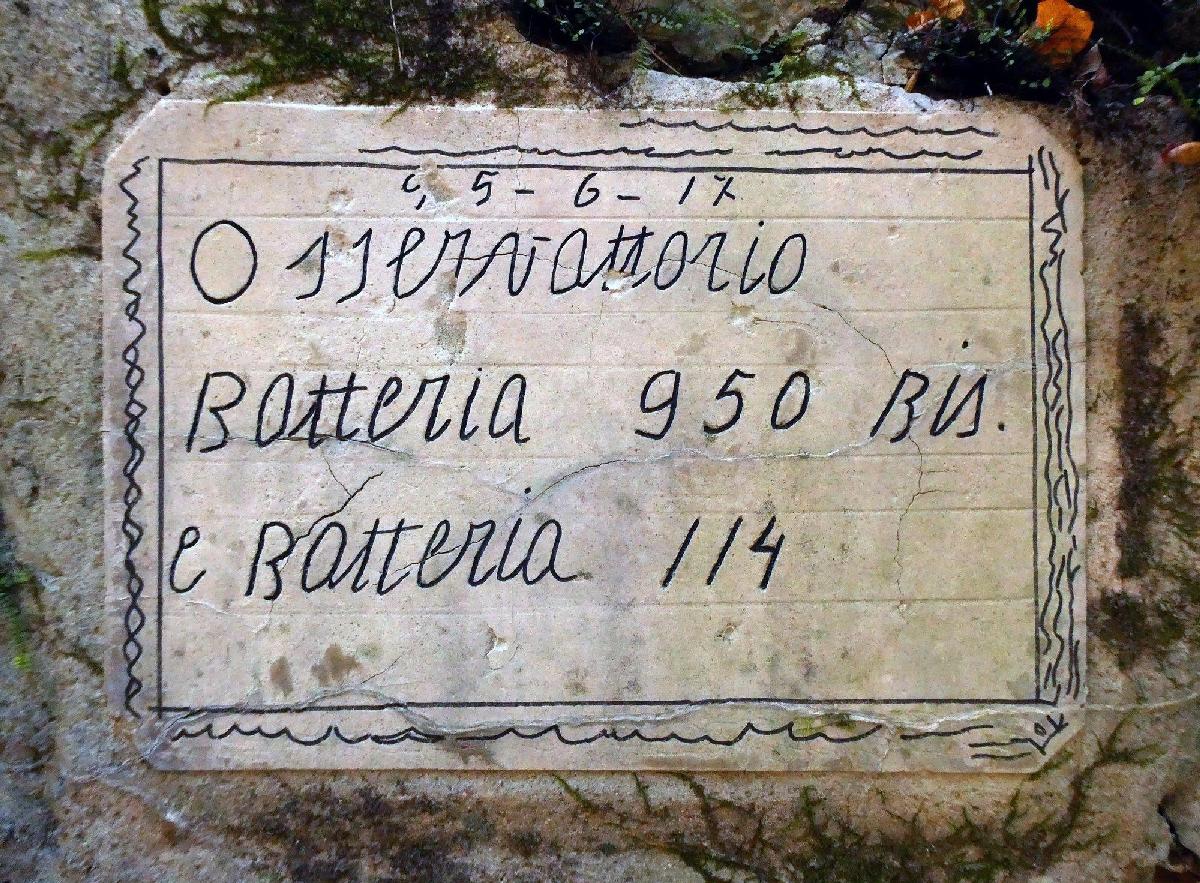 5-6-17
Osservattorio
Batteria 950 Bis.
e Batteria 114